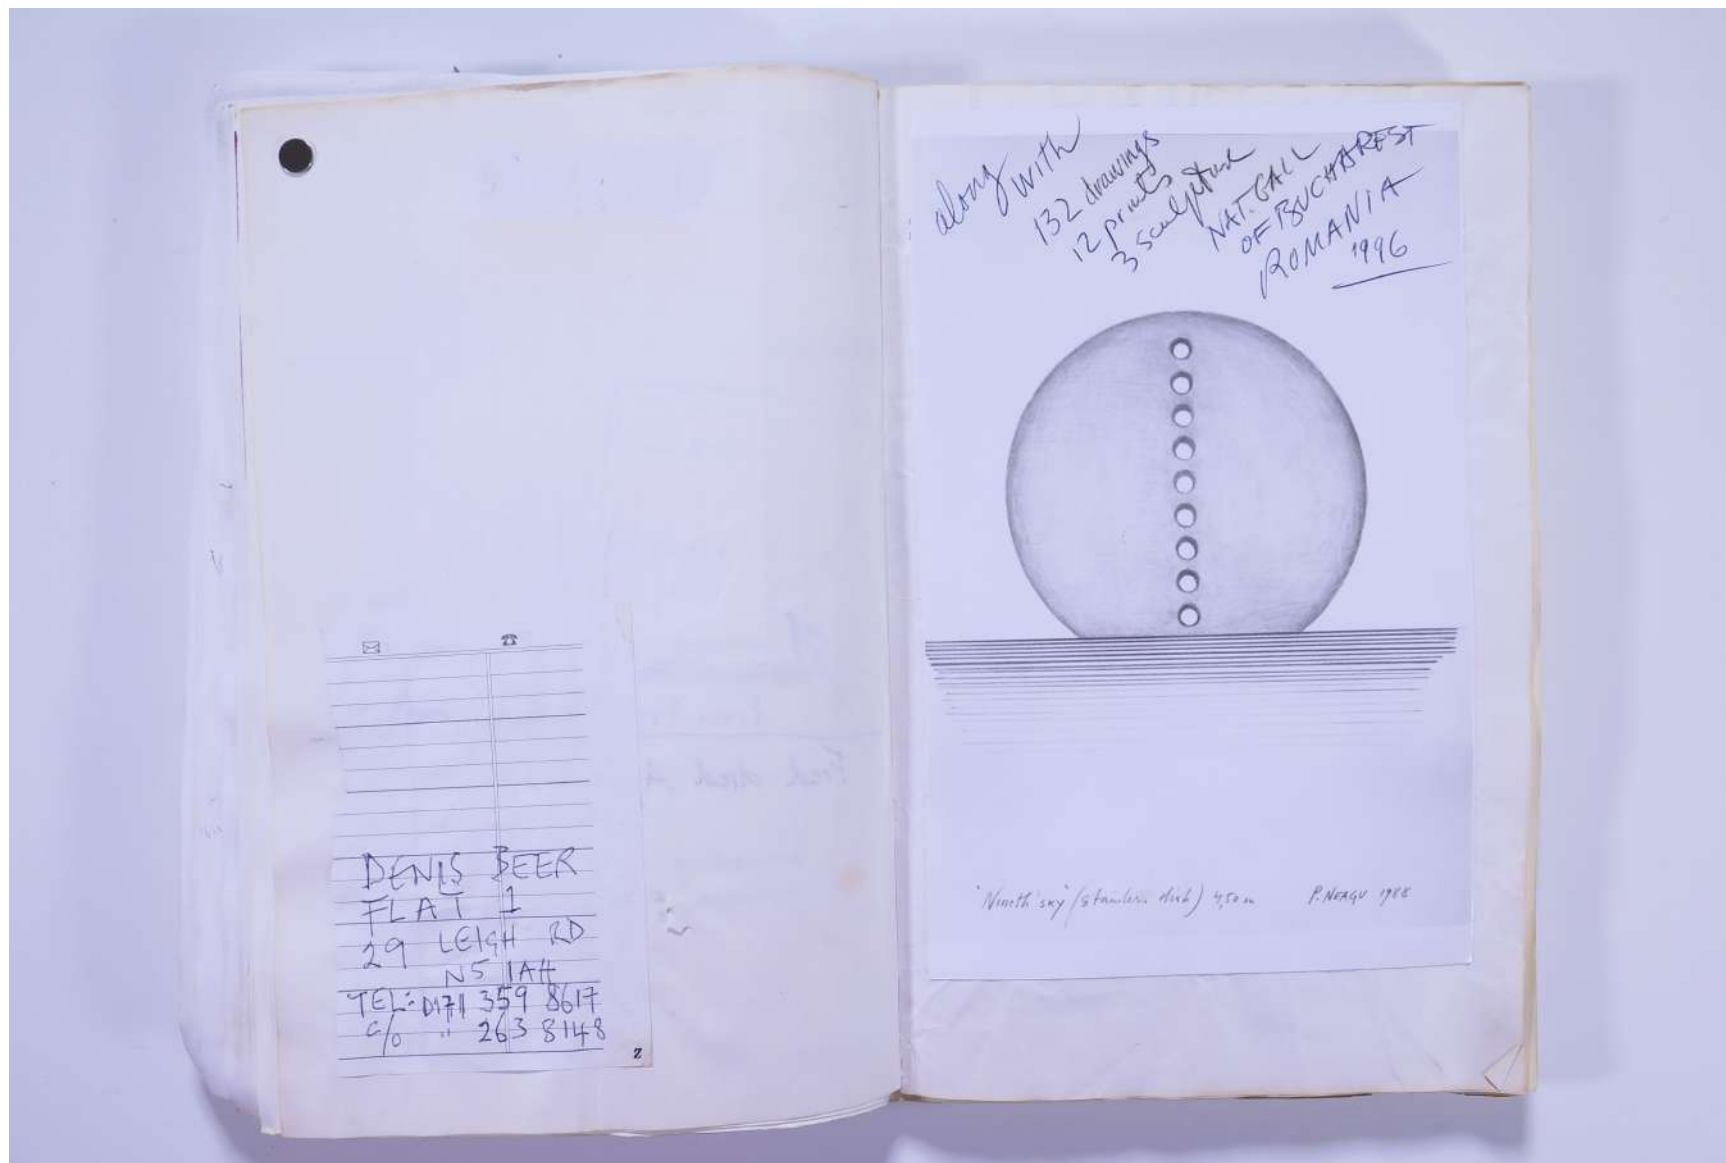 DENIS BEER
FLAT 1
29 LEIGH RD
N5 1AH
TEL: 0171 359 8617
c/o " 263 8148
z
along with
132 drawings
12 prints
3 sculpture
NAT. GALL
OF BUCHAREST
ROMANIA
1996
"Nineth sky" (stainless dish) 4,50 m P. NEAGU 1988